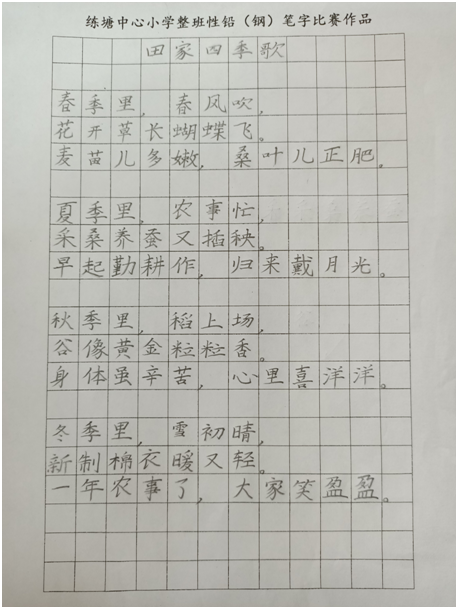 练塘中心小学整班性铅（钢）笔字比赛作品
田家四季歌
春季里，春风吹，
花开草长蝴蝶飞。
麦苗儿多嫩，桑叶儿正肥。
夏季里，农事忙，
采桑养蚕又插秧。
早起勤耕作，归来戴月光。
秋季里，稻上场，
谷像黄金粒粒香。
身体虽辛苦，心里喜洋洋。
冬季里，雪初晴，
新制棉衣暖又轻。
一年农事了，大家笑盈盈。